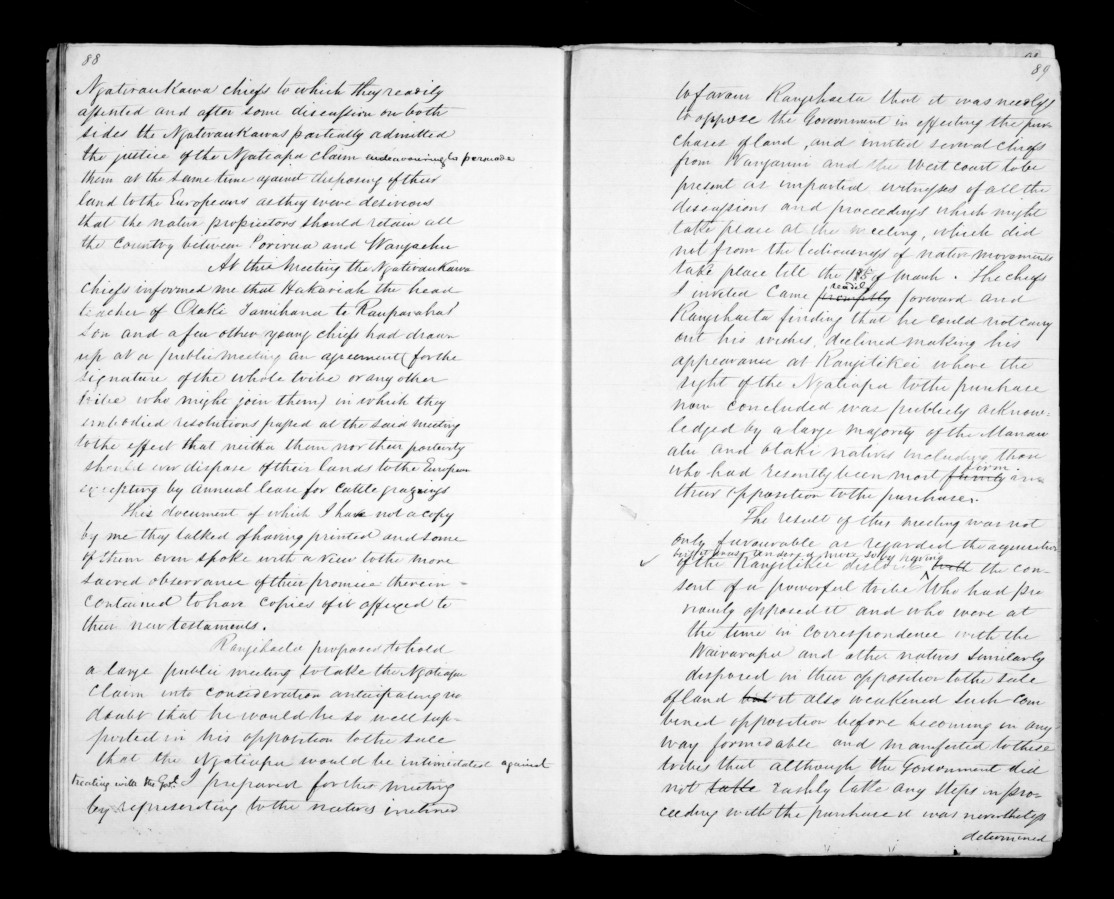 88
Ngatiraukawa chiefs to which they readily
assented and after some discussion on both
sides the Ngatiraukawas partially admitted
the justice of the Ngatiapa claim endeavouring to persuade
them at the same time against disposing of their
land to the Europeans as they were desirous
that the native proprietors should retain all
the country between Porirua and Wangaehu
At this meeting the Ngatiraukawa
chiefs informed me that Hakariah the head
teacher of Otaki Tamihana te Rauparahas'
Son and a few other young chiefs had drawn
up at a public meeting an agreement (for the
signature of the whole tribe or any other
tribe who might join them) in which they
embodied resolutions passed at the said meeting
to the effect that neither them nor their posterity
should ever dispose of their lands to the European
excepting by annual lease for Cattle grazings
This document of which I have not a copy
by me they talked of having printed and some
of them even spoke with a view to the more
sacred observance of their promise therein =
Contained to have copies of it affixed to
their new testaments.
Rangihaeta proposed to hold
a large public meeting to take the Ngatiapa
Claim into consideration anticipating no
doubt that he would be so well sup-
ported in his opposition to the sale
that the Ngatiapa would be intimidated against
treating with the Govt. I prepared for this meeting
by representing to the natives inclined
89
to favour Rangihaeta that it was needless
to oppose the Government in effecting the pur-
chases of land, and invited several chiefs
from Wanganui and the West coast to be
present as impartial witnesses of all the
discussions and proceedings which might
take place at the meeting, which did
not from the tediousness of native movements
take place till the 15 of March. The chiefs
readily
I invited Came promptly forward and
Rangihaeta finding that he could not carry
out his wishes, declined making his
appearance at Rangitikei where the
right of the Ngatiapa to the purchase
now concluded was publicly acknow=
ledged by a large majority of the Manau
atu and Otaki natives including those
who had recently been most firm in
their opposition to the purchase.
The result of this meeting was not
only favourable as regarded the acquisition
of the Rangitikei district with the con-
sent of a powerful tribe who had pre
viously opposed it and who were at
the time in correspondence with the
Wairarapa and other natives similarly
disposed in their opposition to the sale
of land but it also weakened such com
bined opposition before becoming in any
way formidable and manifested to these
tribes that although the Government did
not take rashly take any steps in pro-
ceeding with the purchase it was nevertheless
determined